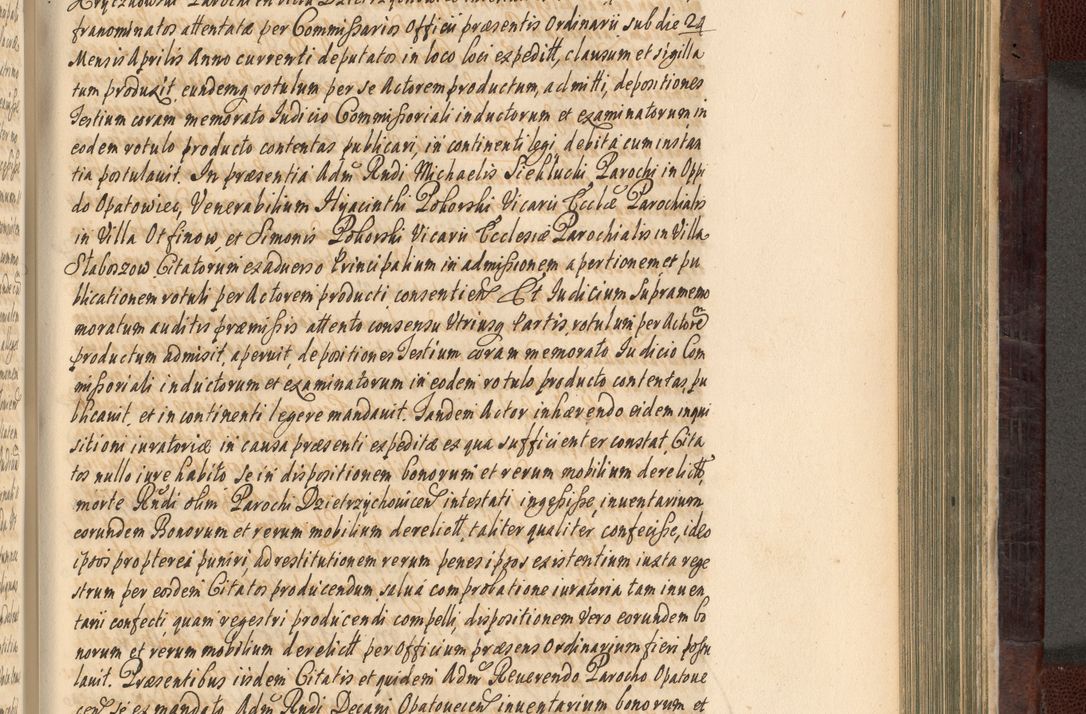 franominatos attentatæ per Commissarios Officii præsentis Ordinarii sub die 24
Mensis Aprilis Anno currenti deputatos in loco loci expeditt, clausum et sigilla
tum produxit, eundemq rotulum per se Actorem productum, admitti, depositiones
Testium coram memorato Iudicio Commissoriali inductorum et examinatorum in
eodem rotulo producto contentas publicari, in continenti legi, debita cum instan
tia postulauit. In præsentia Adm Rndi Michaelis Siekluchi Parochi in Oppi
do Opatowiec, Venerabilium Hyacinthi Pokorski Vicarii Eccliæ Parochialis
in Villa Otfinow, et Simonis Pokorski Vicarii Ecclesiæ Parochialis in Villa
Slaboszow Citatorum ex aduerso Principalium in admissionem apertionem, et pu
blicationem rotuli per Actorem producti consentien Et Iudicium Supramemo
moratum auditis præmissis attento consensu Vtriusq Partis, rotulum per Actorem
productum admisit, aperuit, depositiones Testium coram memorato Iudicio Com
missoriali inductorum et examinatorum in eodem rotulo producto contentas, pu
blicauit, et in continenti legere mandauit. Tandem Actor inhærendo eidem inqui
sitioni iuratoriæ in causa præsenti expeditæ ex qua sufficienter constat, Cita
tos nullo iure habito se in dispositionem bonorum et rerum mobilium derelictt,
morte Rndi olim Parochi Dzietrzychouicen intestati ingessisse, inuentarium
eorundem Bonorum et rerum mobilium derelictt, taliter qualiter confecisse, ideo
ipsos propterea puniri, ad restitutionem rerum penes ipsos existentium iuxta rege
strum per eosdem Citatos producendum, salua comprobatione iuratoria tam inuen
tarii confecti, quam regestri producendi compelli, dispositionem vero eorundem bo
norum et rerum mobilium derelictt per Officium præsens Ordinarium fieri postu
lauit. Præsentibus iisdem Citatis et quidem Adm Reuerendo Parocho Opatoue
cen se ex mandato Adm Rndi Decani Opatouecen inuentarium bonorum et